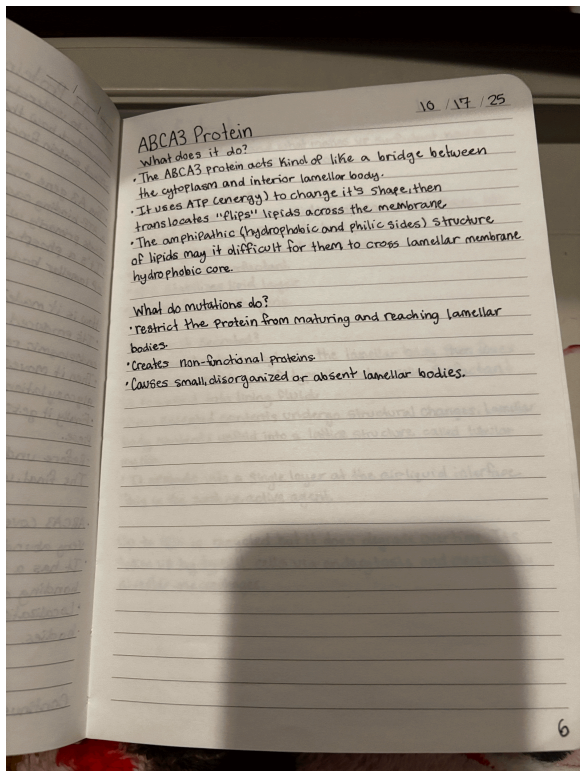 10 / 17 / 25
ABCA3 Protein
What does it do?
• The ABCA3 protein acts kind of like a bridge between
the cytoplasm and interior lamellar body.
• It uses ATP (energy) to change it's shape, then
translocates "flips" lipids across the membrane
• The amphipathic (hydrophobic and philic sides) structure
of lipids may it difficult for them to cross lamellar membrane
hydrophobic core.
What do mutations do?
• restrict the protein from maturing and reaching lamellar
bodies.
• Creates non-fnctional proteins
• Causes small, disorganized or absent lamellar bodies.
6